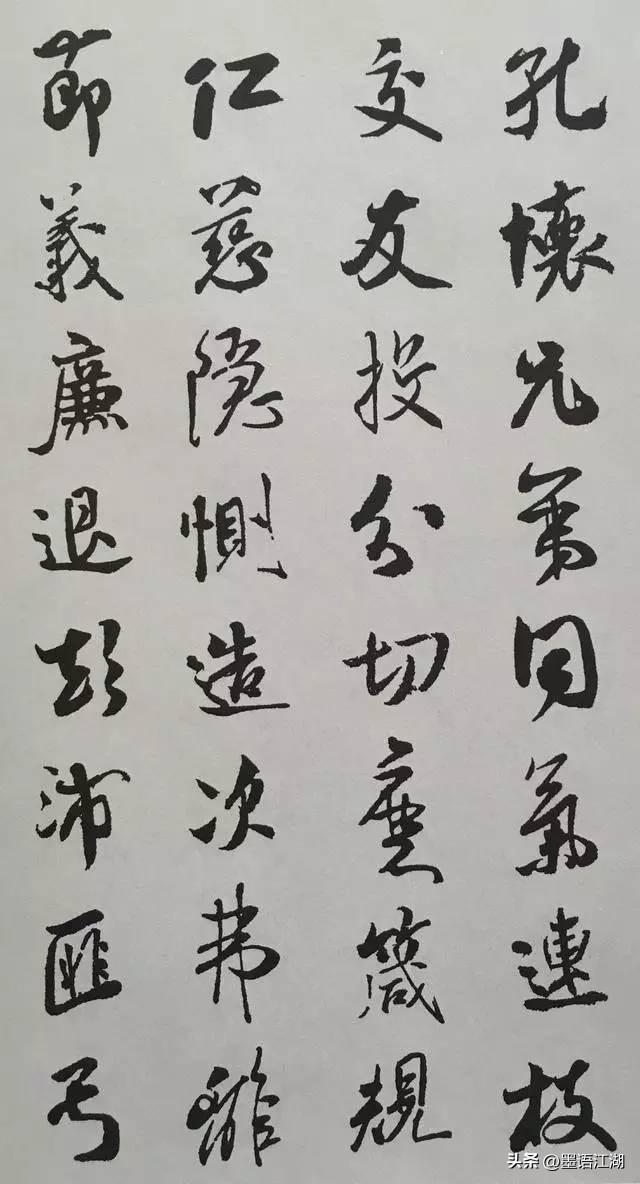 孔懷兄弟同氣連枝
交友投分切磨箴規
仁慈隱惻造次弗離
節義廉退顛沛匪虧
头条 @墨语江湖